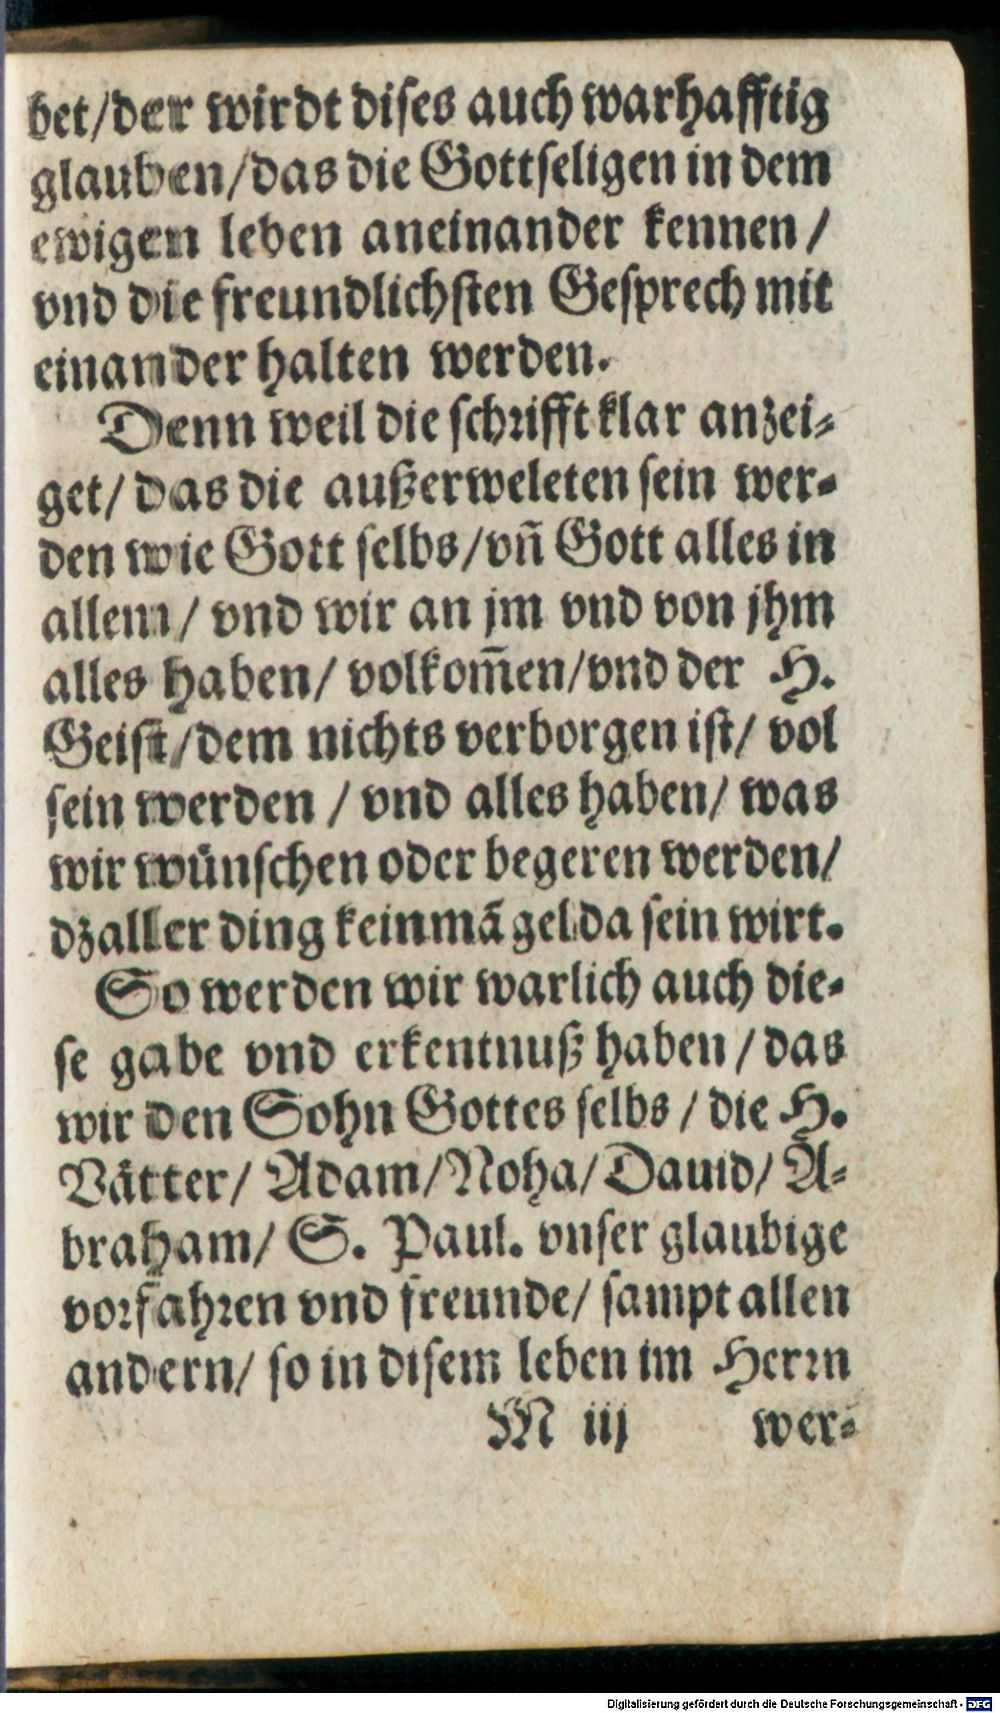 bet/der wirdt dises auch warhafftig
glauben/das die Gottseligen in dem
ewigen leben aneinander kennen/
vnd die freundlichsten Gesprech mit
einander halten werden.
Denn weil die schrifft klar anzei-
get/das die außerweleten sein wer-
den wie Gott selbs/vñ Gott alles in
allem/ vnd wir an jm vnd von jhm
alles haben/ volkom̃en/vnd der H.
Geist/dem nichts verborgen ist/ vol
sein werden / vnd alles haben/ was
wir wünschen oder begeren werden/
dz aller ding kein mãgel da sein wirt.
So werden wir warlich auch die-
se gabe vnd erkentnuß haben/das
wir den Sohn Gottes selbs/ die H.
Vätter/ Adam/Noha/Dauid/ A-
braham/ S. Paul. vnser glaubige
vorfahren vnd freunde/ sampt allen
andern/ so in disem leben im Herrn
M iij wer-
Digitalisierung gefördert durch die Deutsche Forschungsgemeinschaft - DFG